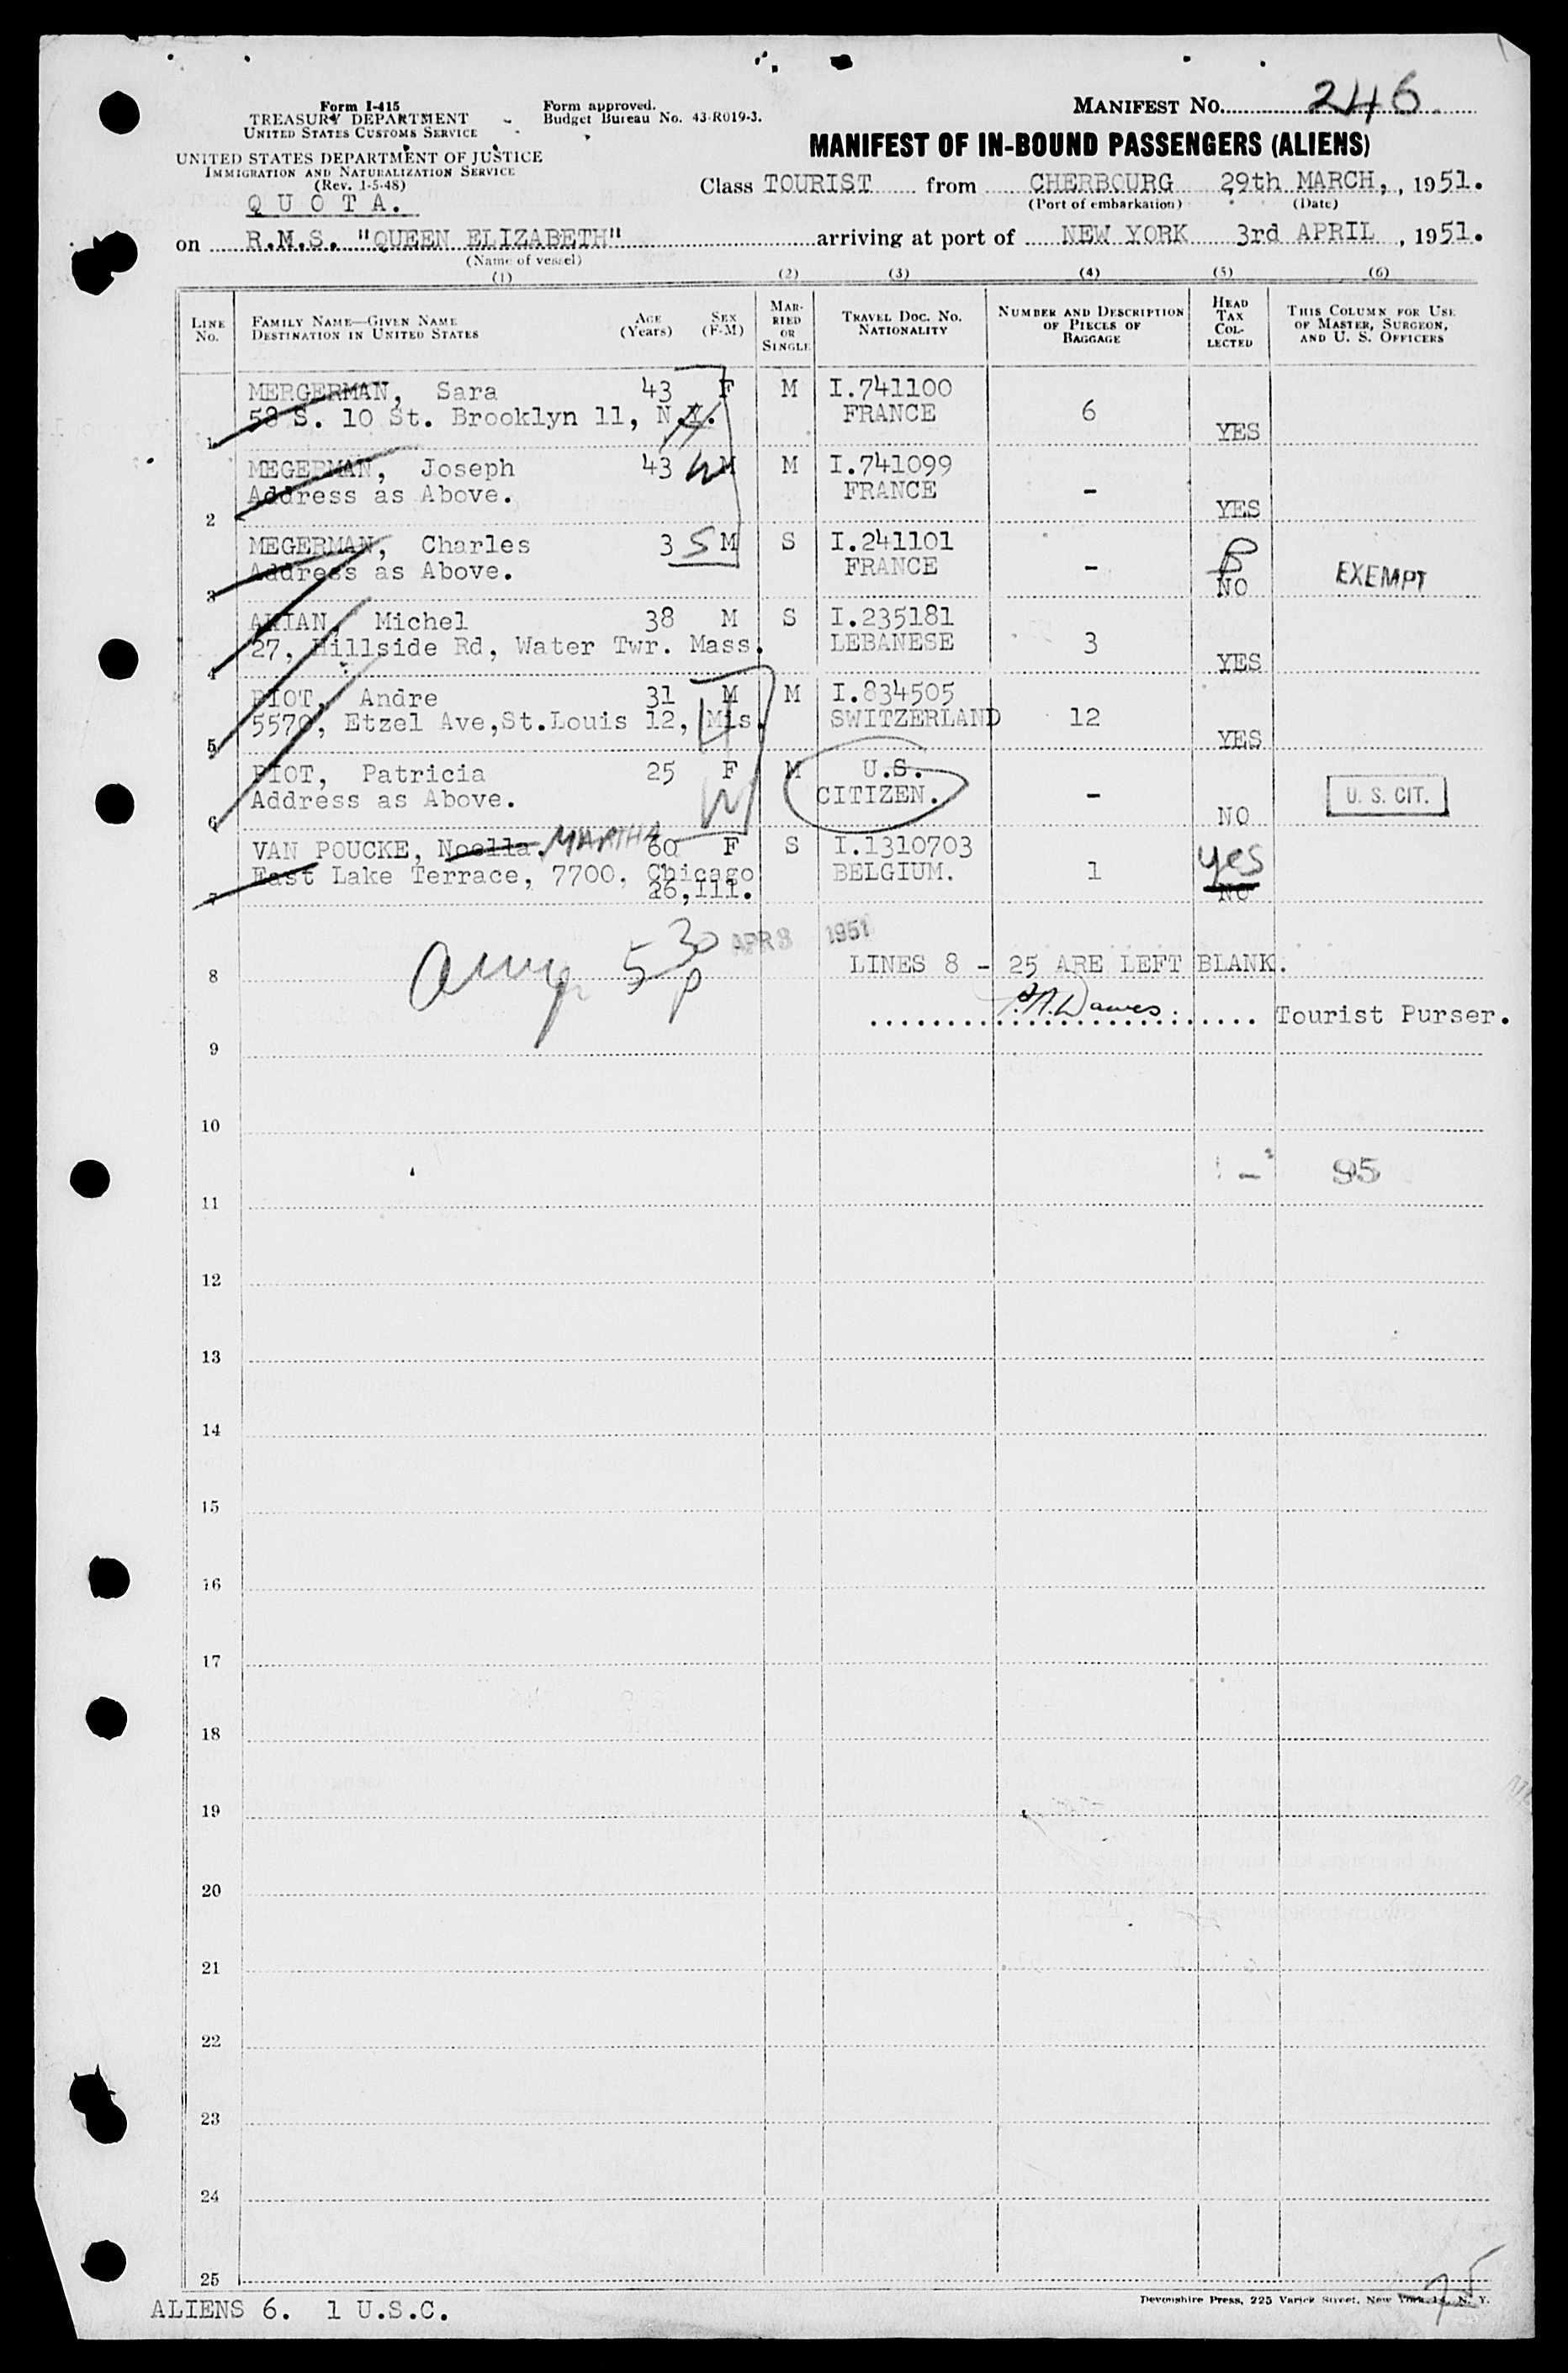 Form I-415
TREASURY DEPARTMENT
UNITED STATES CUSTOMS SERVICE
Form approved.
Budget Bureau No. 43-R019-3.
MANIFEST NO. 246
UNITED STATES DEPARTMENT OF JUSTICE
IMMIGRATION AND NATURALIZATION SERVICE
(Rev. 1-5-48)
MANIFEST OF IN-BOUND PASSENGERS (ALIENS)
Q U O T A.
Class TOURIST from CHERBOURG 29th MARCH, , 1951.
(Port of embarkation) (Date)
on R.M.S. "QUEEN ELIZABETH" arriving at port of NEW YORK 3rd APRIL , 1951.
(Name of vessel)
(1) (2) (3) (4) (5) (6)
LINE NO.
FAMILY NAME—GIVEN NAME
DESTINATION IN UNITED STATES
AGE (Years)
SEX (F-M)
MARRIED OR SINGLE
TRAVEL DOC. NO. NATIONALITY
NUMBER AND DESCRIPTION OF PIECES OF BAGGAGE
HEAD TAX COLLECTED
THIS COLUMN FOR USE OF MASTER, SURGEON, AND U. S. OFFICERS
MERGERMAN, Sara 43 F M I.741100
58 S. 10 St. Brooklyn 11, N.Y. FRANCE 6
1 YES
MEGERMAN, Joseph 43 M M I.741099
Address as Above. FRANCE -
2 YES
MEGERMAN, Charles 3 5 M S I.241101
Address as Above. FRANCE - EXEMPT
3 NO
AKIAN, Michel 38 M S I.235181
27, Hillside Rd, Water Twr. Mass. LEBANESE 3
4 YES
PIOT, Andre 31 M M I.834505
5570, Etzel Ave,St.Louis 12, Mis. SWITZERLAND 12
5 YES
PIOT, Patricia 25 F M U.S.
Address as Above. CITIZEN. - U. S. CIT.
6 NO
VAN POUCKE, Noella. MARTHA 60 F S I.1310703
East Lake Terrace, 7700, Chicago BELGIUM. 1 yes
7 26,Ill. NO
5 30 p APR 3 1951
8 LINES 8 - 25 ARE LEFT BLANK.
Dawes Tourist Purser.
9
10
95
11
12
13
14
15
16
17
18
19
20
21
22
23
24
25
ALIENS 6. 1 U.S.C.
Devonshire Press, 225 Varick Street, New York 14, N. Y.